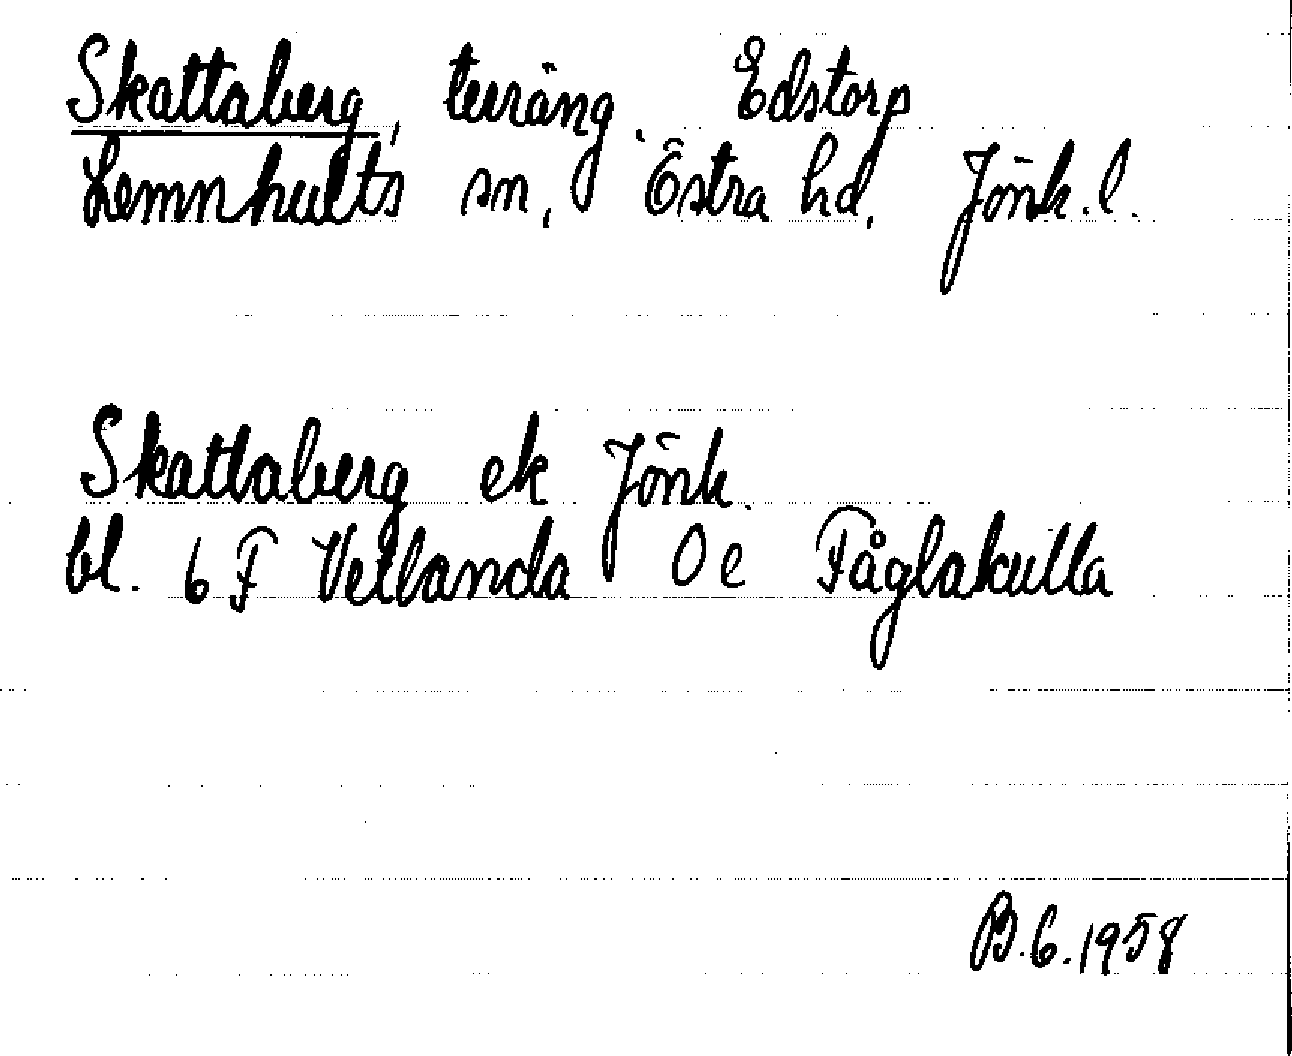 Skattaberg, terräng. Edstorp
Lemnhults sn, Östra hd, Jönk.l.
Skattaberg ek Jönk.
bl. 6 F Vetlanda 0 e Fåglakulla
B.6.1958